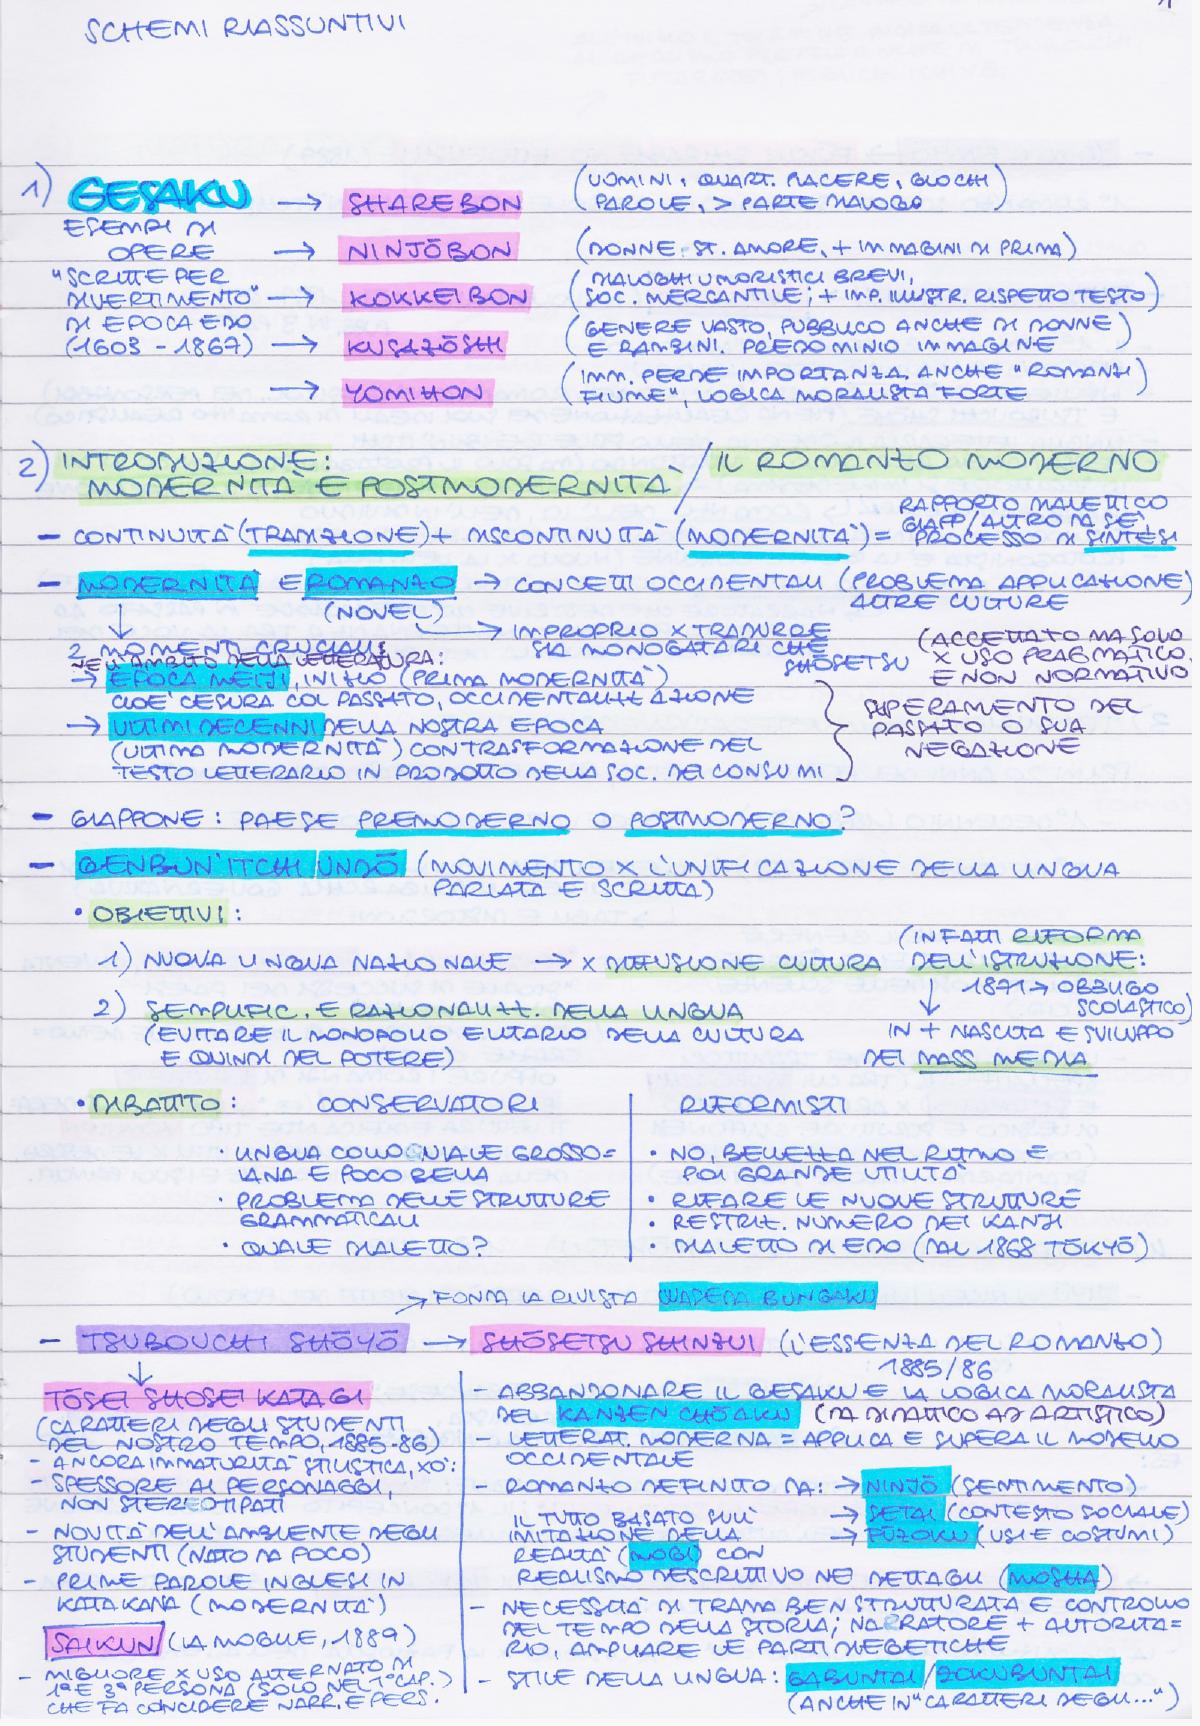 SCHEMI RIASSUNTIVI
1) GESAKU → SHAREBON (UOMINI, QUART. PIACERE, GIOCHI
PAROLE, > PARTE DIALOGO)
ESEMPI DI
OPERE → NINJŌBON (DONNE, ST. AMORE, + IMMAGINI DI PRIMA)
"SCRITTE PER
DIVERTIMENTO" → KOKKEIBON (DIALOGHI UMORISTICI BREVI,
SOC. MERCANTILE; + IMP. ILLUSTR. RISPETTO TESTO)
DI EPOCA EDO
(1603 - 1867) → KUSAZŌSHI (GENERE VASTO, PUBBLICO ANCHE DI DONNE
E BAMBINI. PREDOMINIO IMMAGINE)
→ YOMIHON (IMM. PERDE IMPORTANZA, ANCHE "ROMANZI
FIUME", LOGICA MORALISTA FORTE)
2) INTRODUZIONE:
MODERNITÀ E POSTMODERNITÀ / IL ROMANZO MODERNO
- CONTINUITÀ (TRADIZIONE) + DISCONTINUITÀ (MODERNITÀ) = RAPPORTO DIALETTICO
GIAPP/ALTRO DA SÉ,
PROCESSO DI SINTESI
- MODERNITÀ E ROMANZO → CONCETTI OCCIDENTALI (PROBLEMA APPLICAZIONE)
(NOVEL) ALTRE CULTURE
→ IMPROPRIO X TRADURRE
SIA MONOGATARI CHE
SHŌSETSU
(ACCETTATO MA SOLO
X USO PRAGMATICO
E NON NORMATIVO
2 MOMENTI CRUCIALI
NELL'AMBITO DELLA LETTERATURA:
→ EPOCA MEIJI, INIZIO (PRIMA MODERNITÀ)
CIOÈ CESURA COL PASSATO, OCCIDENTALIZZAZIONE
→ ULTIMI DECENNI DELLA NOSTRA EPOCA
(ULTIMA MODERNITÀ) CON TRASFORMAZIONE DEL
TESTO LETTERARIO IN PRODOTTO DELLA SOC. DEI CONSUMI
SUPERAMENTO DEL
PASSATO O SUA
NEGAZIONE
- GIAPPONE: PAESE PREMODERNO O POSTMODERNO?
- GENBUN'ITCHI UNDŌ (MOVIMENTO X L'UNIFICAZIONE DELLA LINGUA
PARLATA E SCRITTA)
• OBIETTIVI:
1) NUOVA LINGUA NAZIONALE → X DIFFUSIONE CULTURA
(INFATTI RIFORMA
DELL'ISTRUZIONE:
1871 → OBBLIGO
SCOLASTICO)
IN + NASCITA E SVILUPPO
DEI MASS MEDIA
2) SEMPLIFIC. E RAZIONALIZZ. DELLA LINGUA
(EVITARE IL MONOPOLIO ELITARIO DELLA CULTURA
E QUINDI DEL POTERE)
• DIBATTITO: CONSERVATORI
• LINGUA COLLOQUIALE GROSSO=
LANA E POCO BELLA
• PROBLEMA DELLE STRUTTURE
GRAMMATICALI
• QUALE DIALETTO?
RIFORMISTI
• NO, BELLEZZA NEL RITMO E
POI GRANDE UTILITÀ
• RIFARE LE NUOVE STRUTTURE
• RESTRIZ. NUMERO DEI KANJI
• DIALETTO DI EDO (DAL 1868 TŌKYŌ)
→ FONDA LA RIVISTA WASEDA BUNGAKU
- TSUBOUCHI SHŌYŌ → SHŌSETSU SHINZUI (L'ESSENZA DEL ROMANZO)
1885/86
TŌSEI SHOSEI KATAGI
(CARATTERI DEGLI STUDENTI
DEL NOSTRO TEMPO, 1885-86)
- ANCORA IMMATURITÀ STILISTICA, XÒ:
- SPESSORE AI PERSONAGGI,
NON STEREOTIPATI
- NOVITÀ DELL'AMBIENTE DEGLI
STUDENTI (NATO DA POCO)
- PRIME PAROLE INGLESI IN
KATAKANA (MODERNITÀ)
SAIKUN (LA MOGLIE, 1889)
- MIGLIORE X USO ALTERNATO DI
1ª E 3ª PERSONA (SOLO NEL 1° CAP.)
CHE FA COINCIDERE NARR. E PERS.
- ABBANDONARE IL GESAKU E LA LOGICA MORALISTA
DEL KANZEN CHŌAKU (DA DIDATTICO AD ARTISTICO)
- LETTERAT. MODERNA = APPLICA E SUPERA IL MODELLO
OCCIDENTALE
- ROMANZO DEFINITO DA: → NINJŌ (SENTIMENTO)
IL TUTTO BASATO SULL' → SETAI (CONTESTO SOCIALE)
IMITAZIONE DELLA → FŪZOKU (USI E COSTUMI)
REALTÀ (MOGI) CON
REALISMO DESCRITTIVO NEI DETTAGLI (MOSHA)
- NECESSITÀ DI TRAMA BEN STRUTTURATA E CONTROLLO
DEL TEMPO DELLA STORIA; NARRATORE + AUTORITA=
RIO, AMPLIARE LE PARTI DIEGETICHE
- STILE DELLA LINGUA: GABUNTAI / ZOKUBUNTAI
(ANCHE IN "CARATTERI DEGLI...")